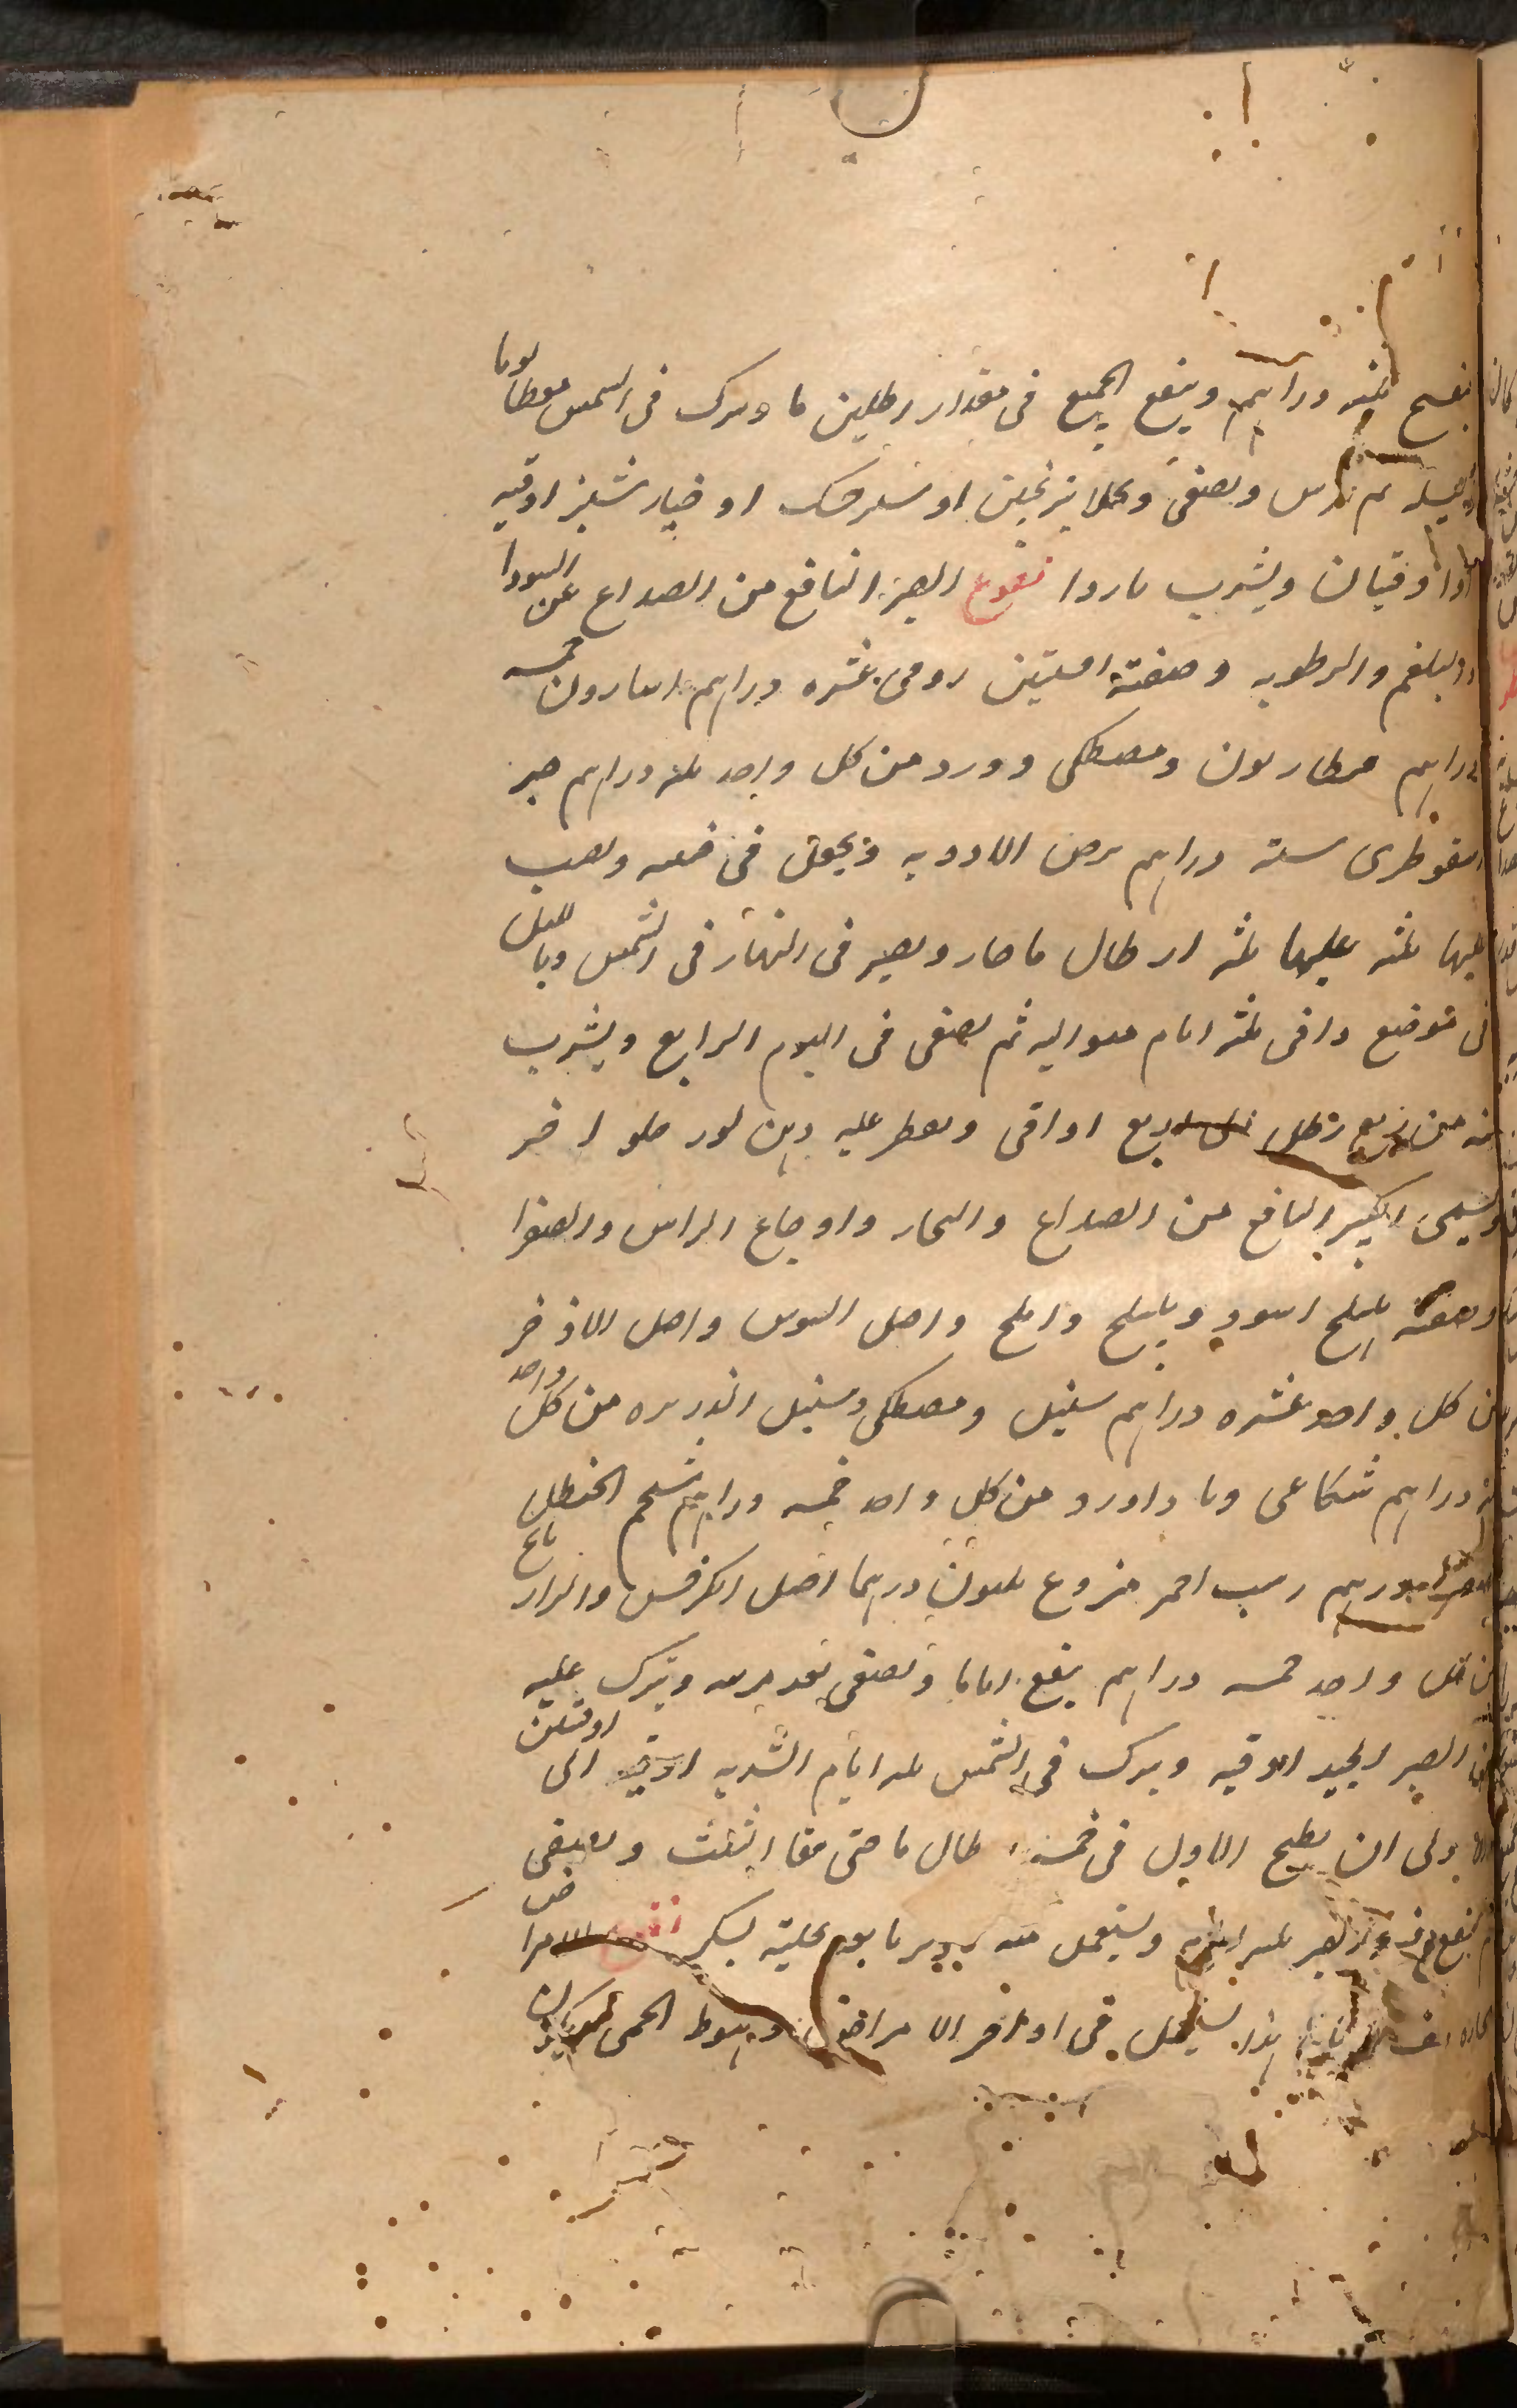 بنفسج ثلثه دراهم وينقع الجميع فى مقدار رطلين ما ويترك فى الشمس مغطا يوما
وليله ثم يمرس ويصفى ويحلا بترنجبين او شيرخشك او خيار شنبر اوقيه
او اوقيتان ويشرب باردا نقوع الصبر النافع من الصداع عن السودا
والبلغم والرطوبه وصفته افسنتين رومى عشره دراهم اسارون خمسه
دراهم قنطاريون ومصطكى وورد من كل واحد ثلثه دراهم صبر
اسقوطرى سته دراهم يرض الادويه ويجعل فى ويصب
عليها ثلثه عليها ثلثه ارطال ما حار ويصير فى النهار فى الشمس وبالليل
فى موضع دافى ثلثه ايام متواليه ثم يصفى فى اليوم الرابع ويشرب
منه من ربع رطل اربع اواقى ويقطر عليه دهن لوز حلو اخر
ويسمى الكبير النافع من الصداع والبخار واوجاع الراس والصفرا
وصفته هليلج اسود وبليلج واملج واصل السوس واصل الاذخر
من كل واحد عشره دراهم سنبل ومصطكى وسنبل الذريره من كل واحد
دراهم شكاعى وباداورد من كل واحد خمسه دراهم شحم الحنظل
دراهم زبيب احمر منزوع ثلثون درهما اصل الكرفس والرازيانج
من كل واحد خمسه دراهم ينقع اياما ويصفى بعد مرسه ويترك عليه
من الصبر الجيد اوقيه ويترك فى الشمس ثلثه ايام الشربه اوقيه الى اوقيتين
والاولى ان يطبخ الاول فى خمسه ارطال ما حتى يبقا الثلث ويصفى
ثم ينقع فيه الصبر ويستعمل منه بسكر نقوع الامراض
الحاره هذا يستعمل فى اواخر الامراض وهبوط الحمى